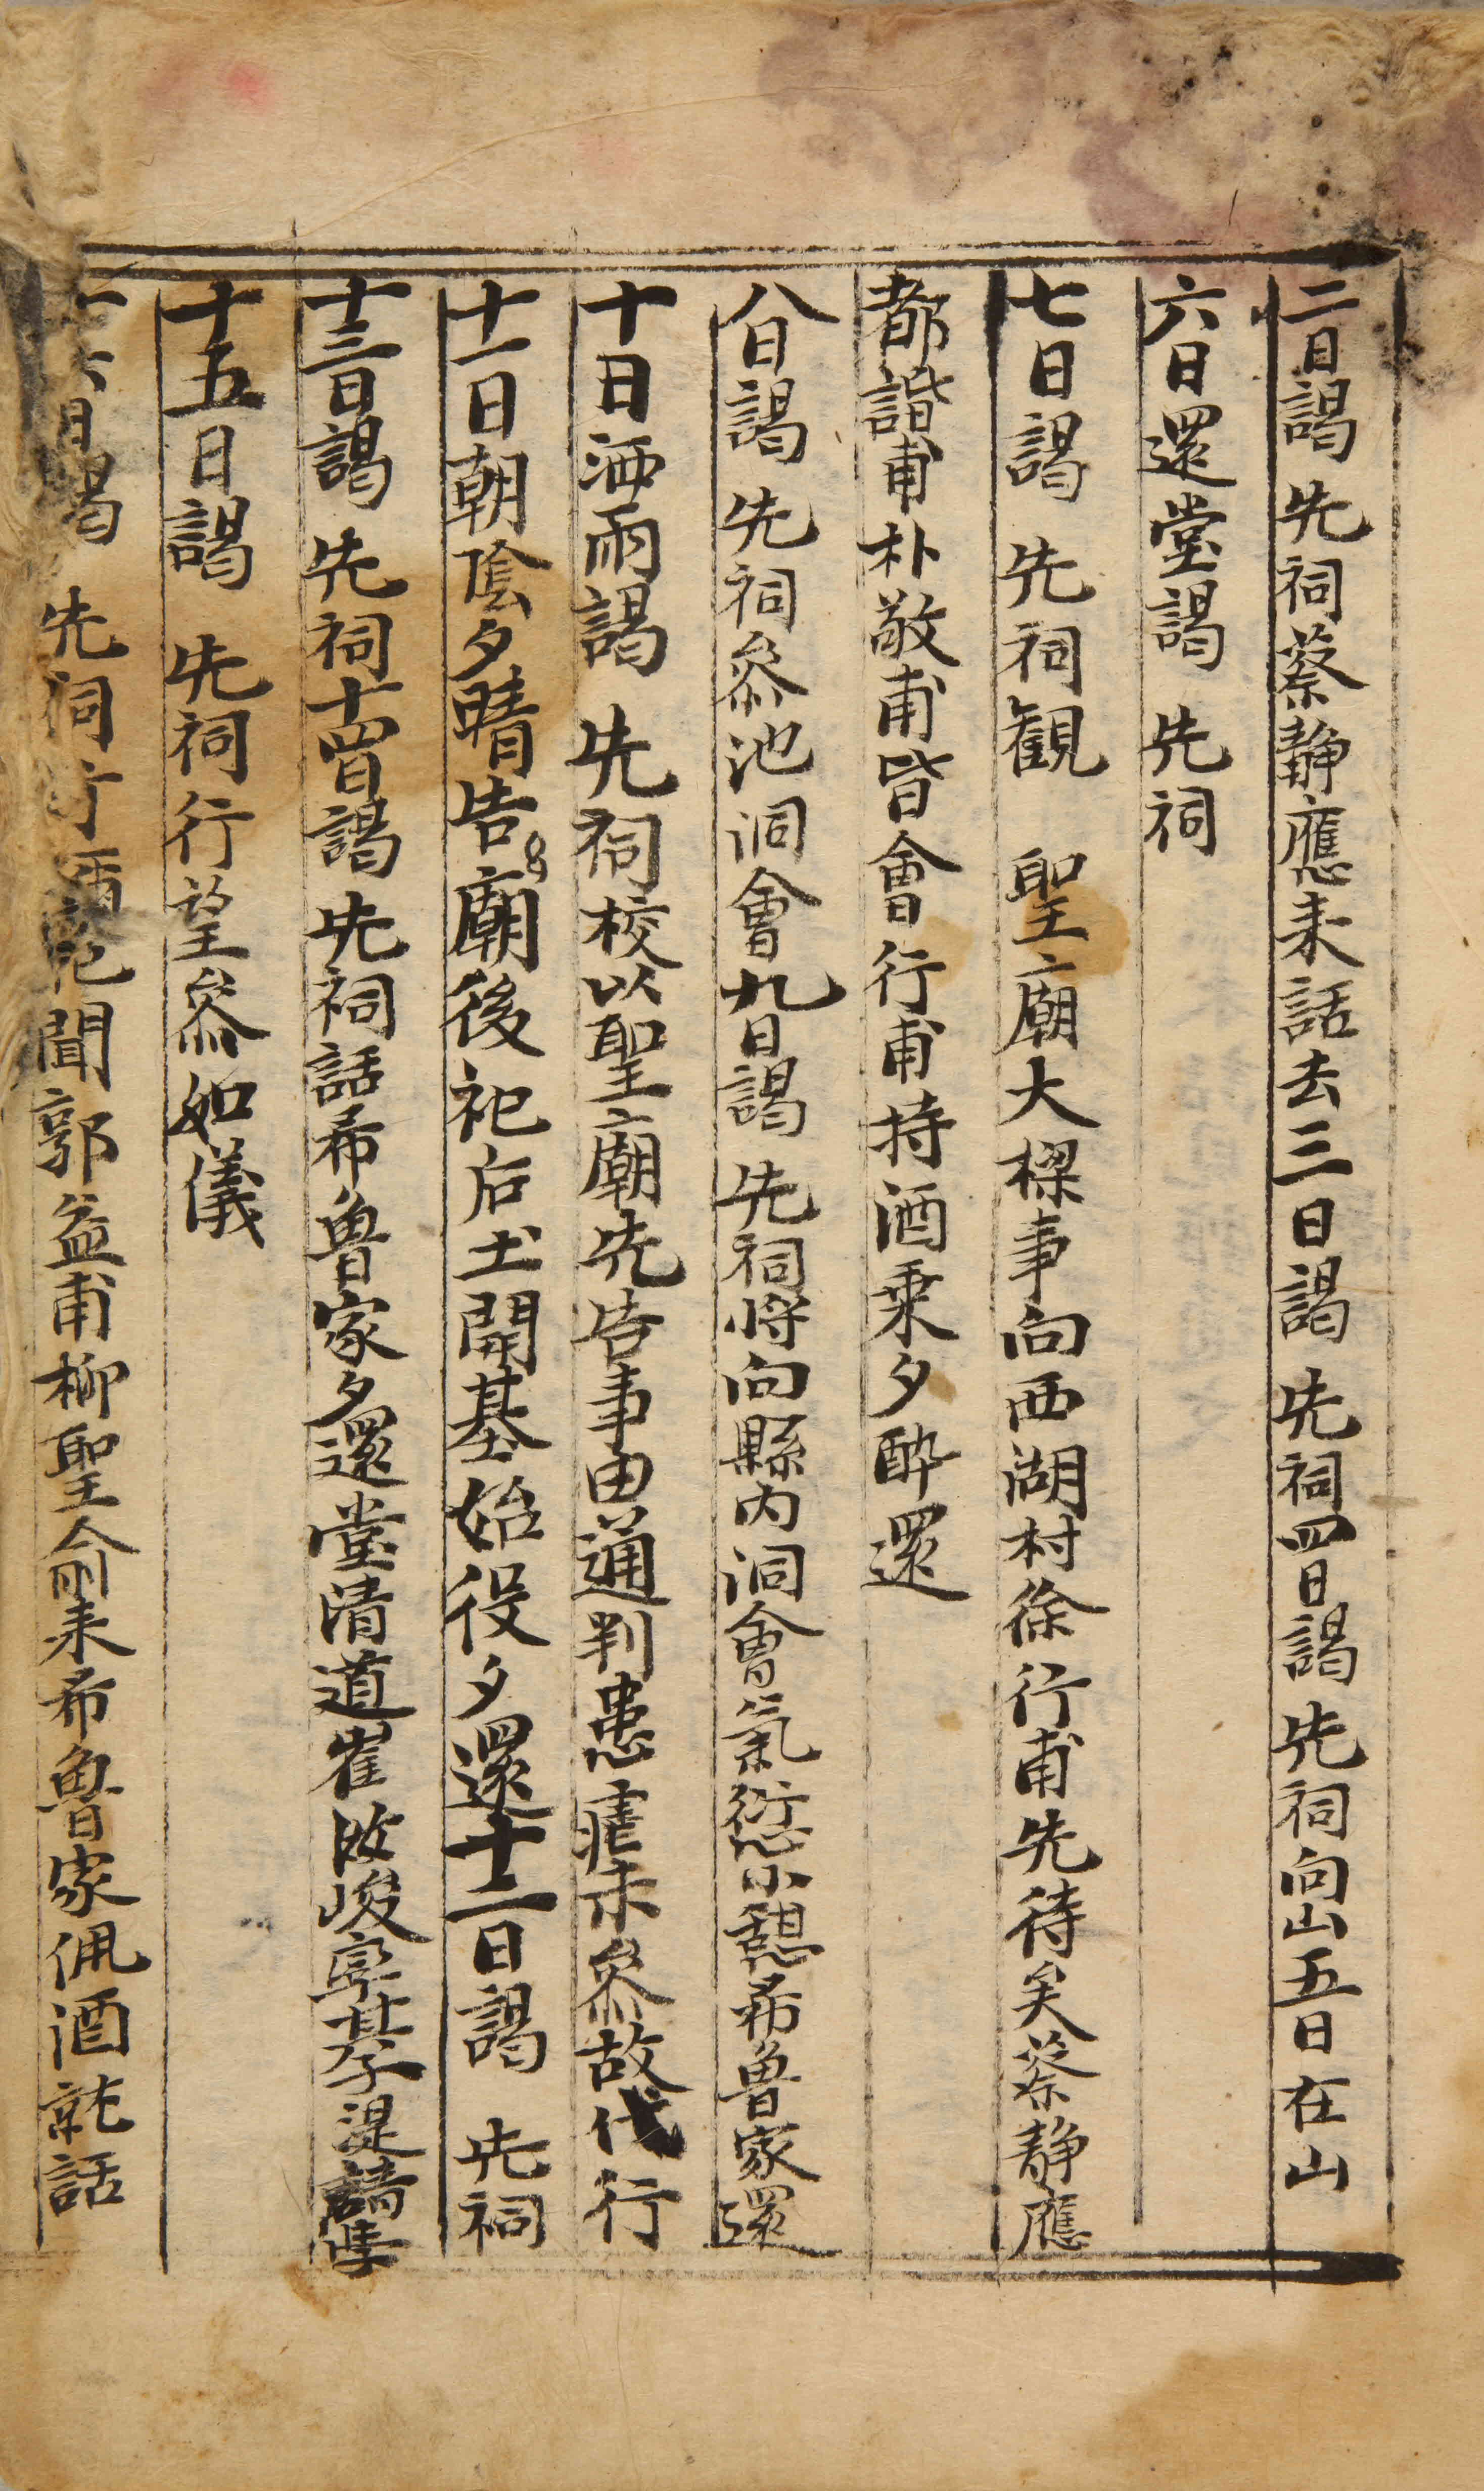 二日謁 先祠蔡靜應来話去三日謁 先祠四日謁 先祠向山五日在山
六日還堂謁 先祠
七日謁 先祠観 聖廟大樑事向西湖村徐行甫先待矣蔡靜應
都諧甫朴敬甫皆會行甫持酒乗夕醉還
八日謁 先祠叅池洞會九日謁 先祠将向縣内洞會氣愆小憩希魯家還
十日洒雨謁 先祠校以聖廟先告事由通判患瘧未叅故代行
十一日朝陰夕晴告廟後祀后土開基始役夕還十二日謁 先祠
十三日謁 先祠十四日謁 先祠話希魯家夕還堂清道崔峻寧其子湜請學
十五日謁 先祠行望叅如儀
十六日謁 先祠行 祀聞郭益甫柳聖俞来希魯家佩酒就話